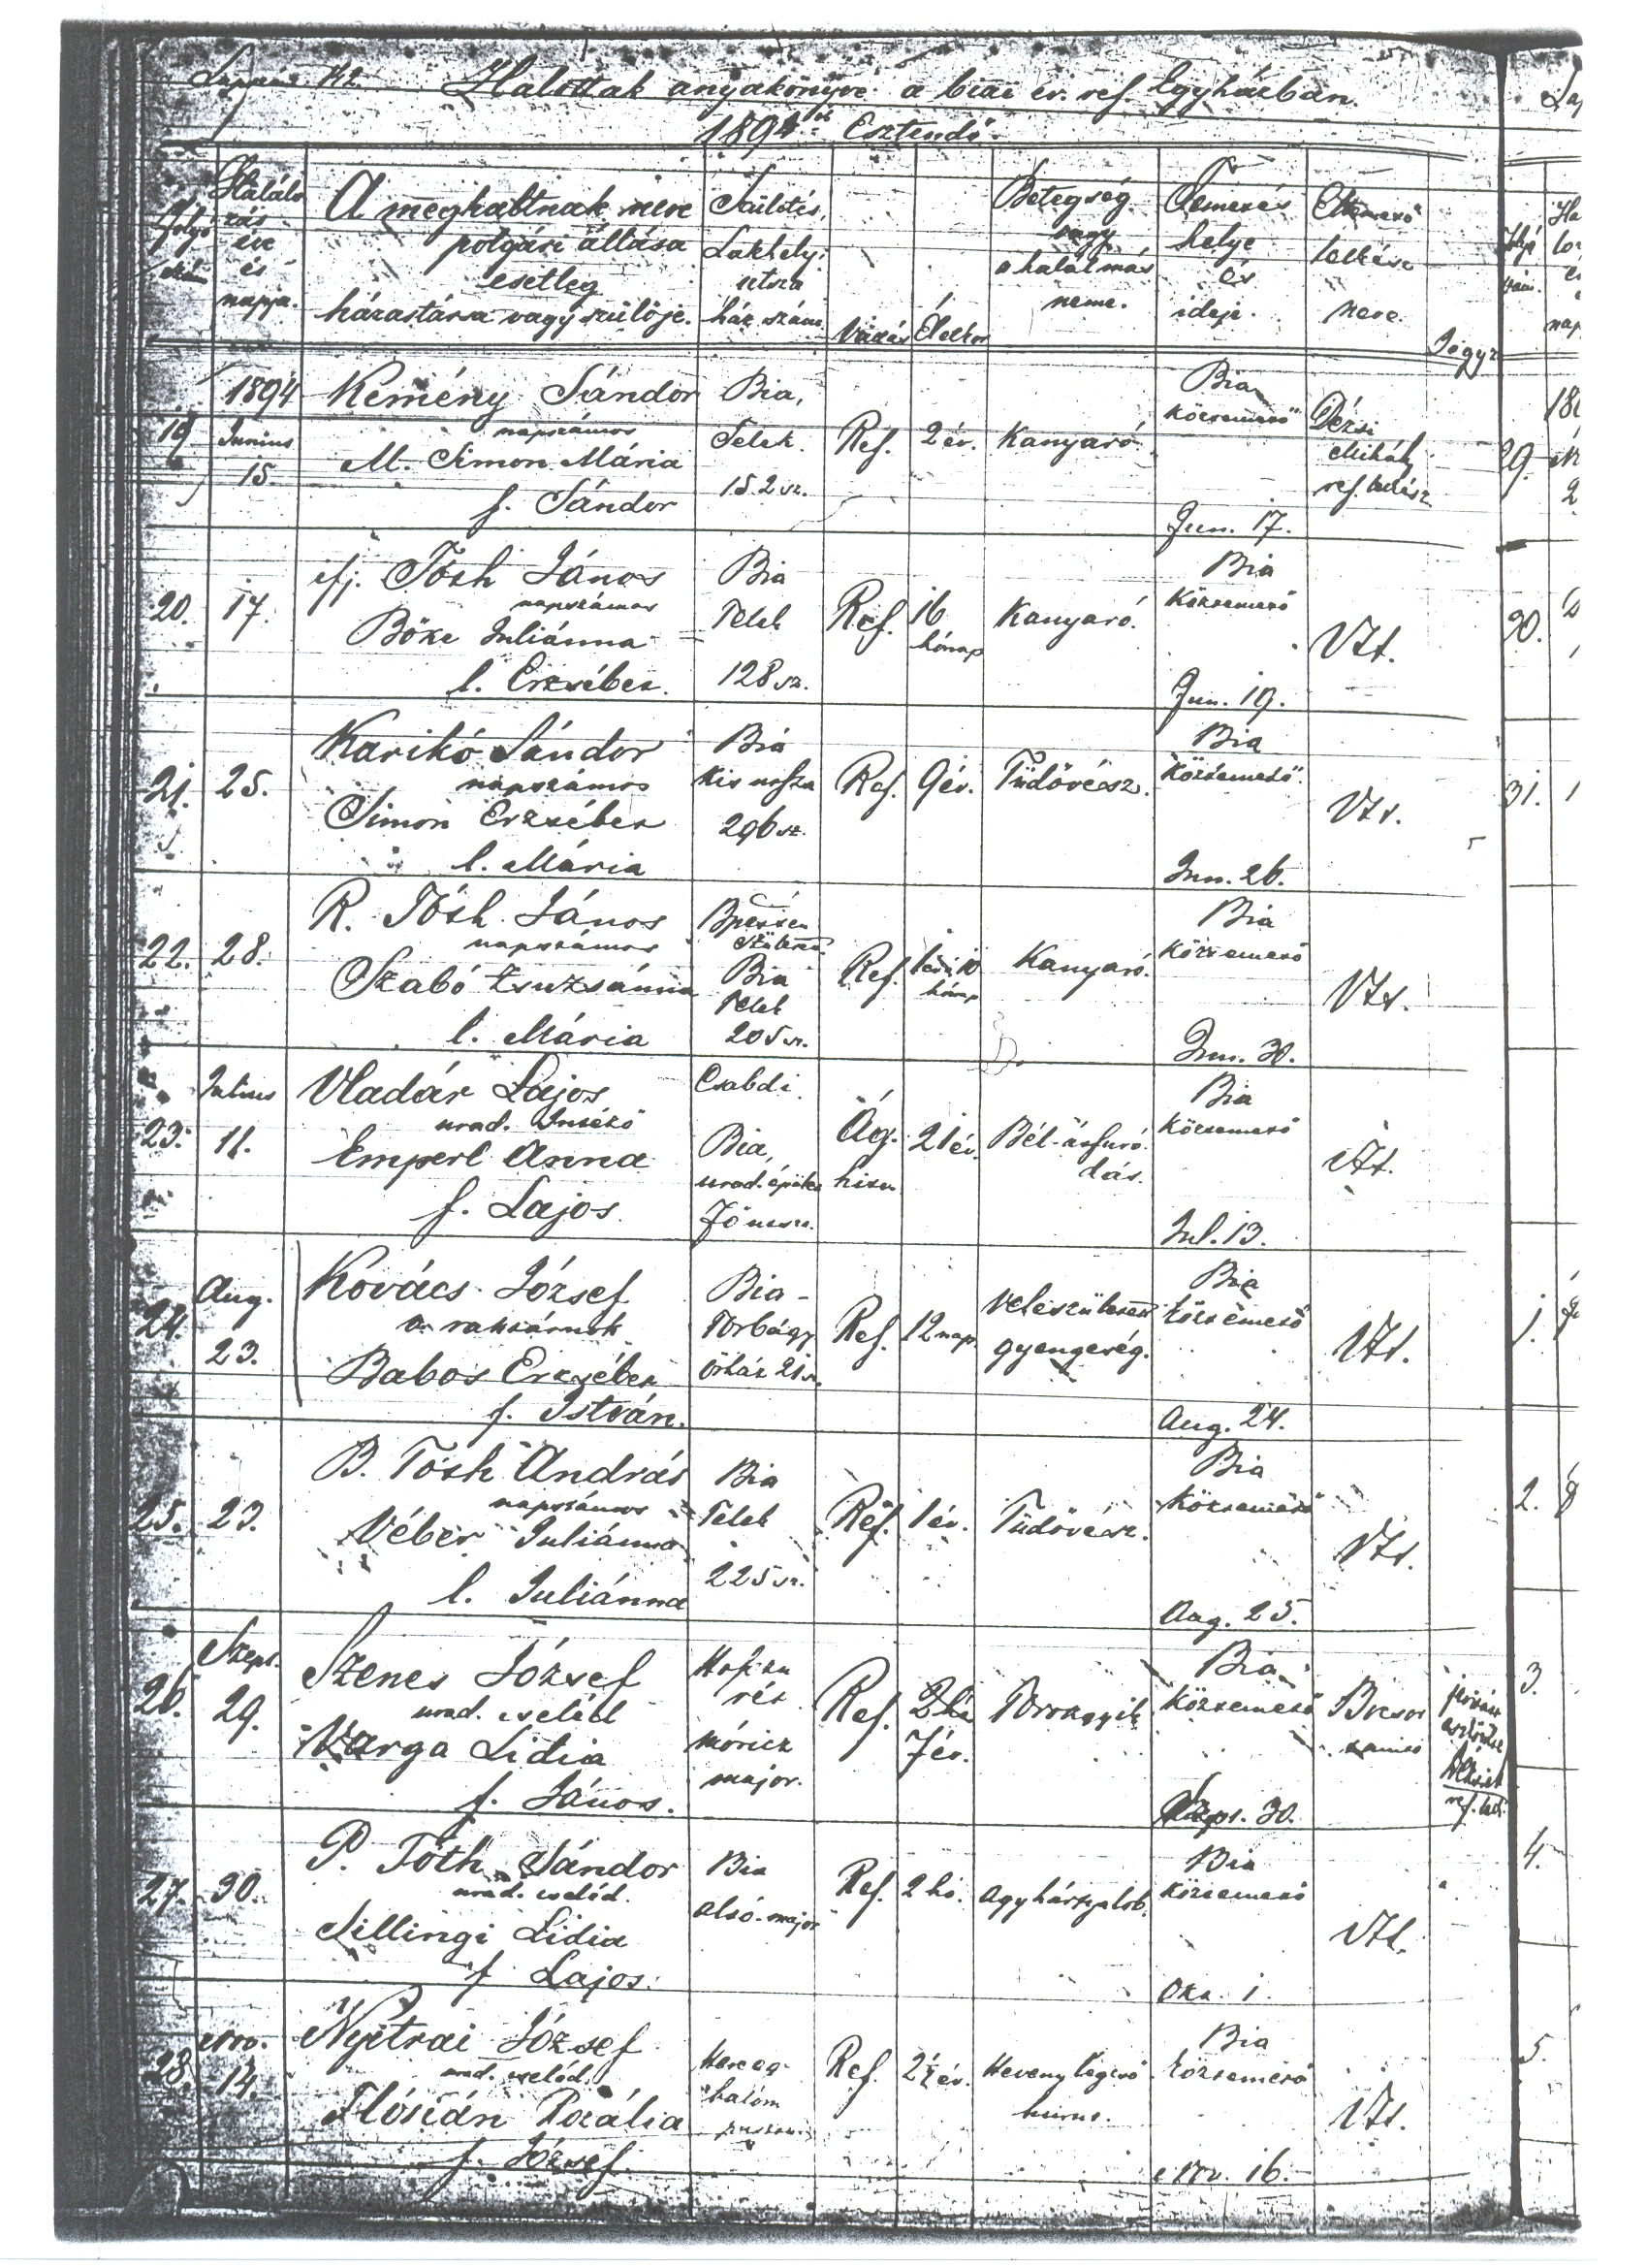 142.
Halottak anyakönyve a biai ev. ref. Egyházban.
1894ik Esztendő.
folyó szám
Halálozás éve és napja.
A meghaltnak neve polgári állása esetleg házastársa vagy szülője.
Születés, Lakhely, utsza ház szám
Vallás
Életkor
Betegség vagy a halál más neme.
Temetés helye és ideje.
Eltemető lelkész neve.
Jegyz
19
1894 Junius 15.
Kemény Sándor
napszámos
M. Simon Mária
f. Sándor
Bia, Telek. 152 sz.
Ref.
2 év.
Kanyaró
Bia köztemető
Jun. 17.
Dézsi Mihály ref. lelkész
20.
17.
ifj. Tóth János
napszámos
Bőke Juliánna
l. Erzsébet.
Bia Telek 128 sz.
Ref.
16 hónap
Kanyaró.
Bia Köztemető
Jun. 19.
Uzt.
21.
25.
Karikó Sándor
napszámos
Simon Erzsébet
l. Mária
Bia Kis utsza 296 sz.
Ref.
9 év.
Tüdővész.
Bia Köztemető.
Jun. 26.
Uzt.
22.
28.
R. Tóth János
napszámos
Szabó Zsuzsánna
l. Mária
Bpesten született Bia Telek 205 sz.
Ref.
1 év 10 hónap
Kanyaró.
Bia köztemető
Jun. 30.
Uzt.
23.
Julius 11.
Vladár Lajos
urad. Intéző
Emperl Anna
f. Lajos
Csabdi. Bia, urad. épület
Ág. hitv.
21 év.
Bél-átfuródás.
Bia Köztemető
Jul. 13.
Uzt.
24.
Aug. 23.
Kovács József
Babos Erzsébet
f. István.
Bia-Torbágy őrház 21 sz.
Ref.
12 nap.
Veleszületett gyengeség.
Bia köztemető
Aug. 24.
Uzt.
25.
23.
B. Tóth András
napszámos
Véber Juliánna
l. Juliánna
Bia Telek 225 sz.
Ref.
1 év.
Tüdővész.
Bia Köztemető
Aug. 25.
Uzt.
26.
Szept. 29.
Szenes József
urad. cseléd
Varga Lidia
f. János.
móricz major.
Ref.
7 év.
Torokgyík
Bia Köztemető
Szept. 30.
27.
30.
P. Tóth Sándor
urad. cseléd.
Sillingi Lidia
f. Lajos.
Bia alsó-major
Ref.
2 hó.
Agyhártyalob.
Bia köztemető
Okt. 1.
Uzt.
28.
Nov. 14.
Nyitrai József
urad. cseléd.
Flórián Rozália
f. József.
Herceghalom
Ref.
2½ év.
Heveny légcső hurut.
Bia köztemető
Nov. 16.
Uzt.
29.
30.
31.
1.
2.
3.
4.
5.